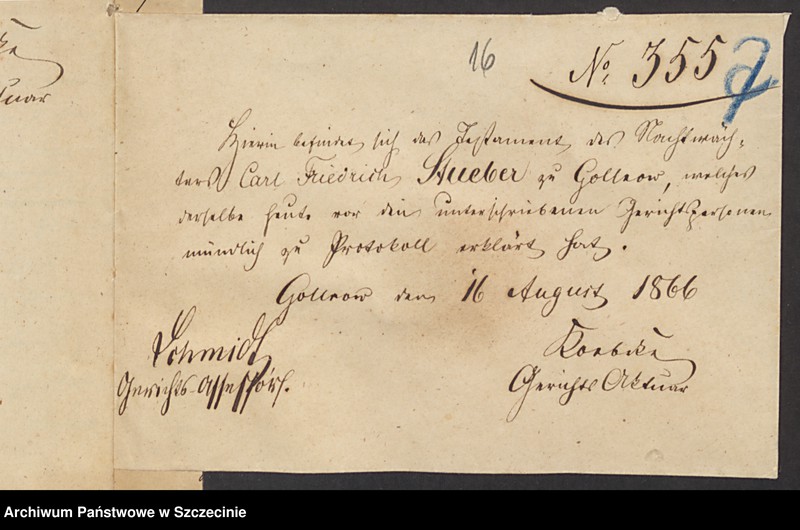 16
No. 355
Hierin befindet sich das Testament des Nachtwäch-
ters Carl Friedrich Stueber zu Gollnow, welches
derselbe heute vor den unterschriebenen Gerichtspersonen
mündlich zu Protokoll erklärt hat.
Gollnow den 16 August 1866
Schmidt
Gerichts-Assessor.
Koebcke
Gerichts Aktuar
tuar
Archiwum Państwowe w Szczecinie